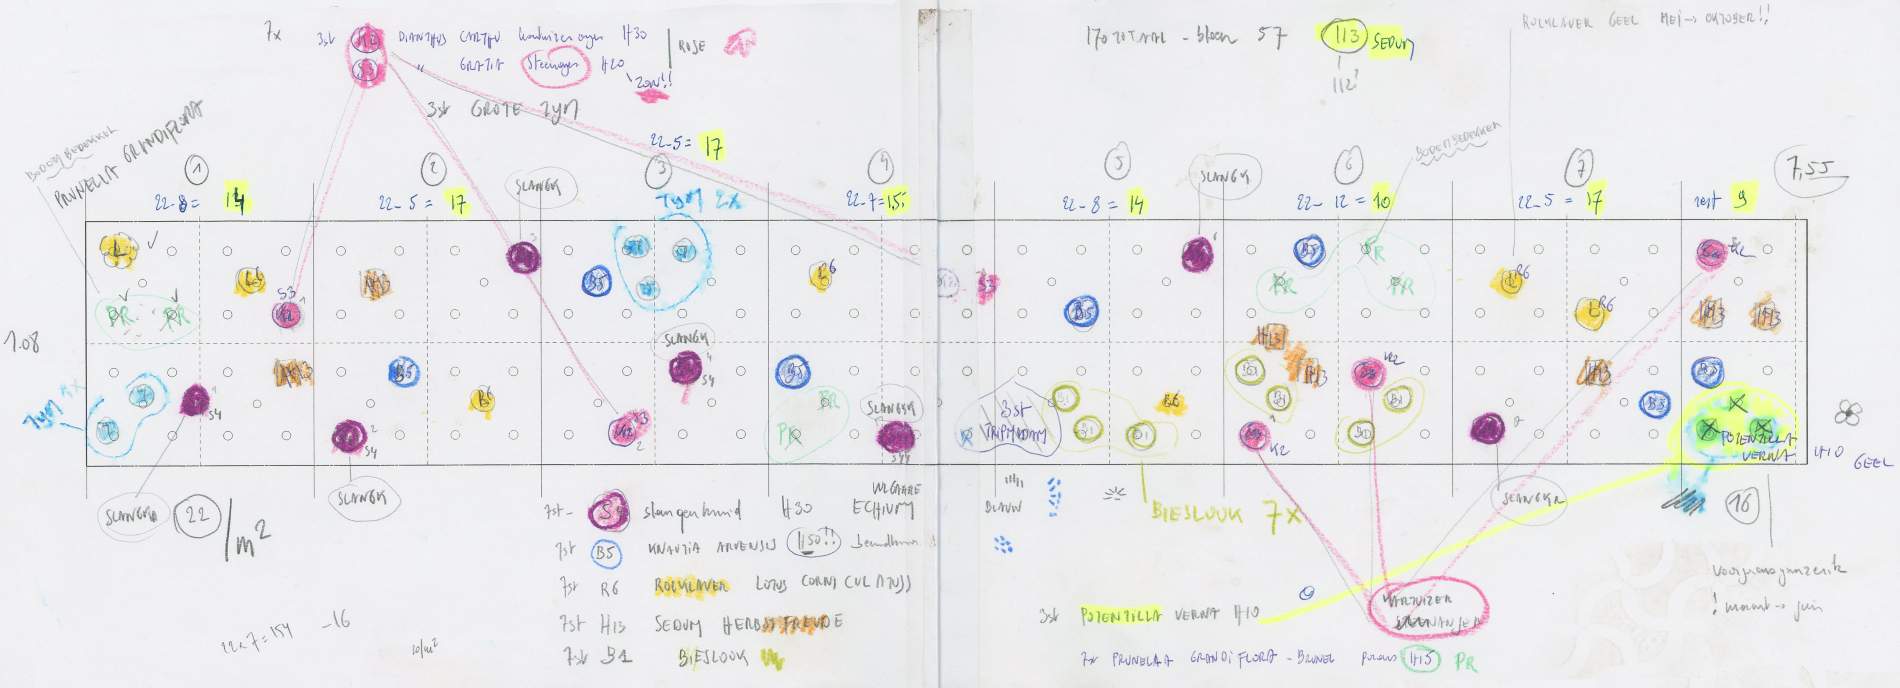 7x 3st K2 DIANTHUS CARTHU kartuizer anjer H30
S3 " GRATIA Steenanjer H20
ROSE
ZON!!
3st GROTE TYM
170 TOTAAL - bloem 57 113 SEDUM
112?
ROLKLAVER GEEL MEI → OKTOBER!!
BODEM BEDEKKER
PRUNELLA GRANDIFLORA
BODEMBEDEKKER
1 2 3 4 5 6 7
7,55
22-8= 14
22-5= 17
22-5= 17
22-7= 15
22-8= 14
22-12= 10
22-5= 17
rest 9
SLANGK
SLANGK
TYM 2X
1.08
L
R6
S3
K2
H13
B5
T
PR
PR
S4
SLANGK
3st TRIPMADAM
B1
TYM
POTENTILLA VERNA
H10 GEEL
SLANGK
SLANGK
SLANGKR
SLANGK
22/m²
16
7st - S4 slangenkruid H30 ECHIUM VULGAARE
BLAUW
7st B5 KNAUTIA ARVENSIS H50!! beemdkroon
7st R6 ROLKLAVER LOTUS CORNICULATUSS
7st H13 SEDUM HERBSTFREUDE
7st B1 BIESLOOK
BIESLOOK 7X
22x7=154 -16
10/m²
3st POTENTILLA VERNA H10
KARTUIZER
STEENANJER
7st PRUNELLA GRANDIFLORA - BRUNEL H15 PR
! maart → juni